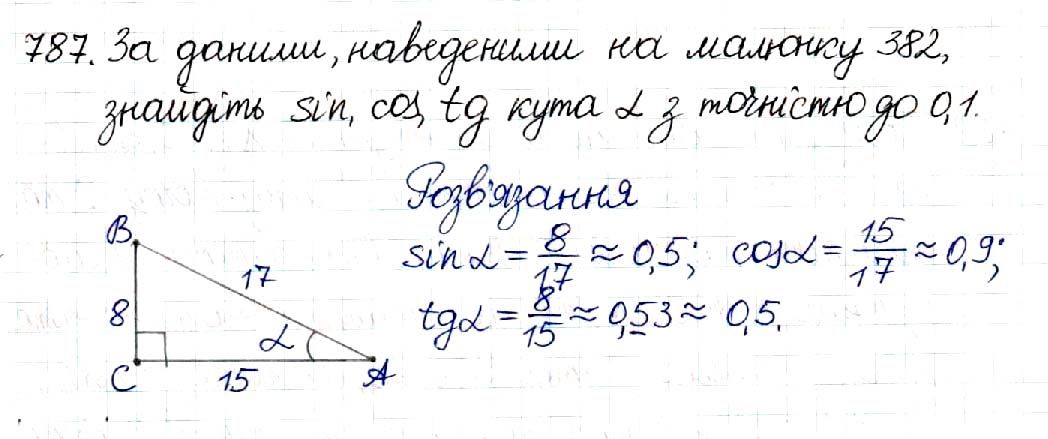 787. За даними, наведеними на малюнку 382,
знайдіть sin, cos, tg кута α з точністю до 0,1.
Розв'язання
sin α = 8/17 ≈ 0,5; cos α = 15/17 ≈ 0,9;
tg α = 8/15 ≈ 0,53 ≈ 0,5.
B
17
8
α
C
15
A